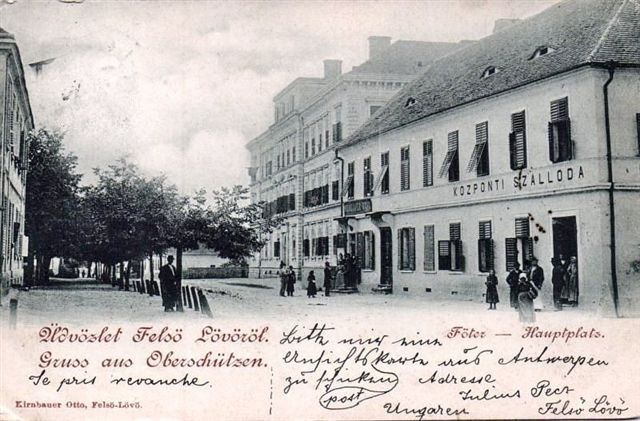 KÖZPONTI SZÁLLODA
Üdvözlet Felső Lövőről.
Gruss aus Oberschützen.
Főtér — Hauptplatz.
Je pris revanche.
Kirnbauer Otto, Felső-Lövő.
Bitte mir eine
Ansichtskarte aus Antwerpen
zu schicken Adresse
(post) Julius
Ungaren Felső Lövő